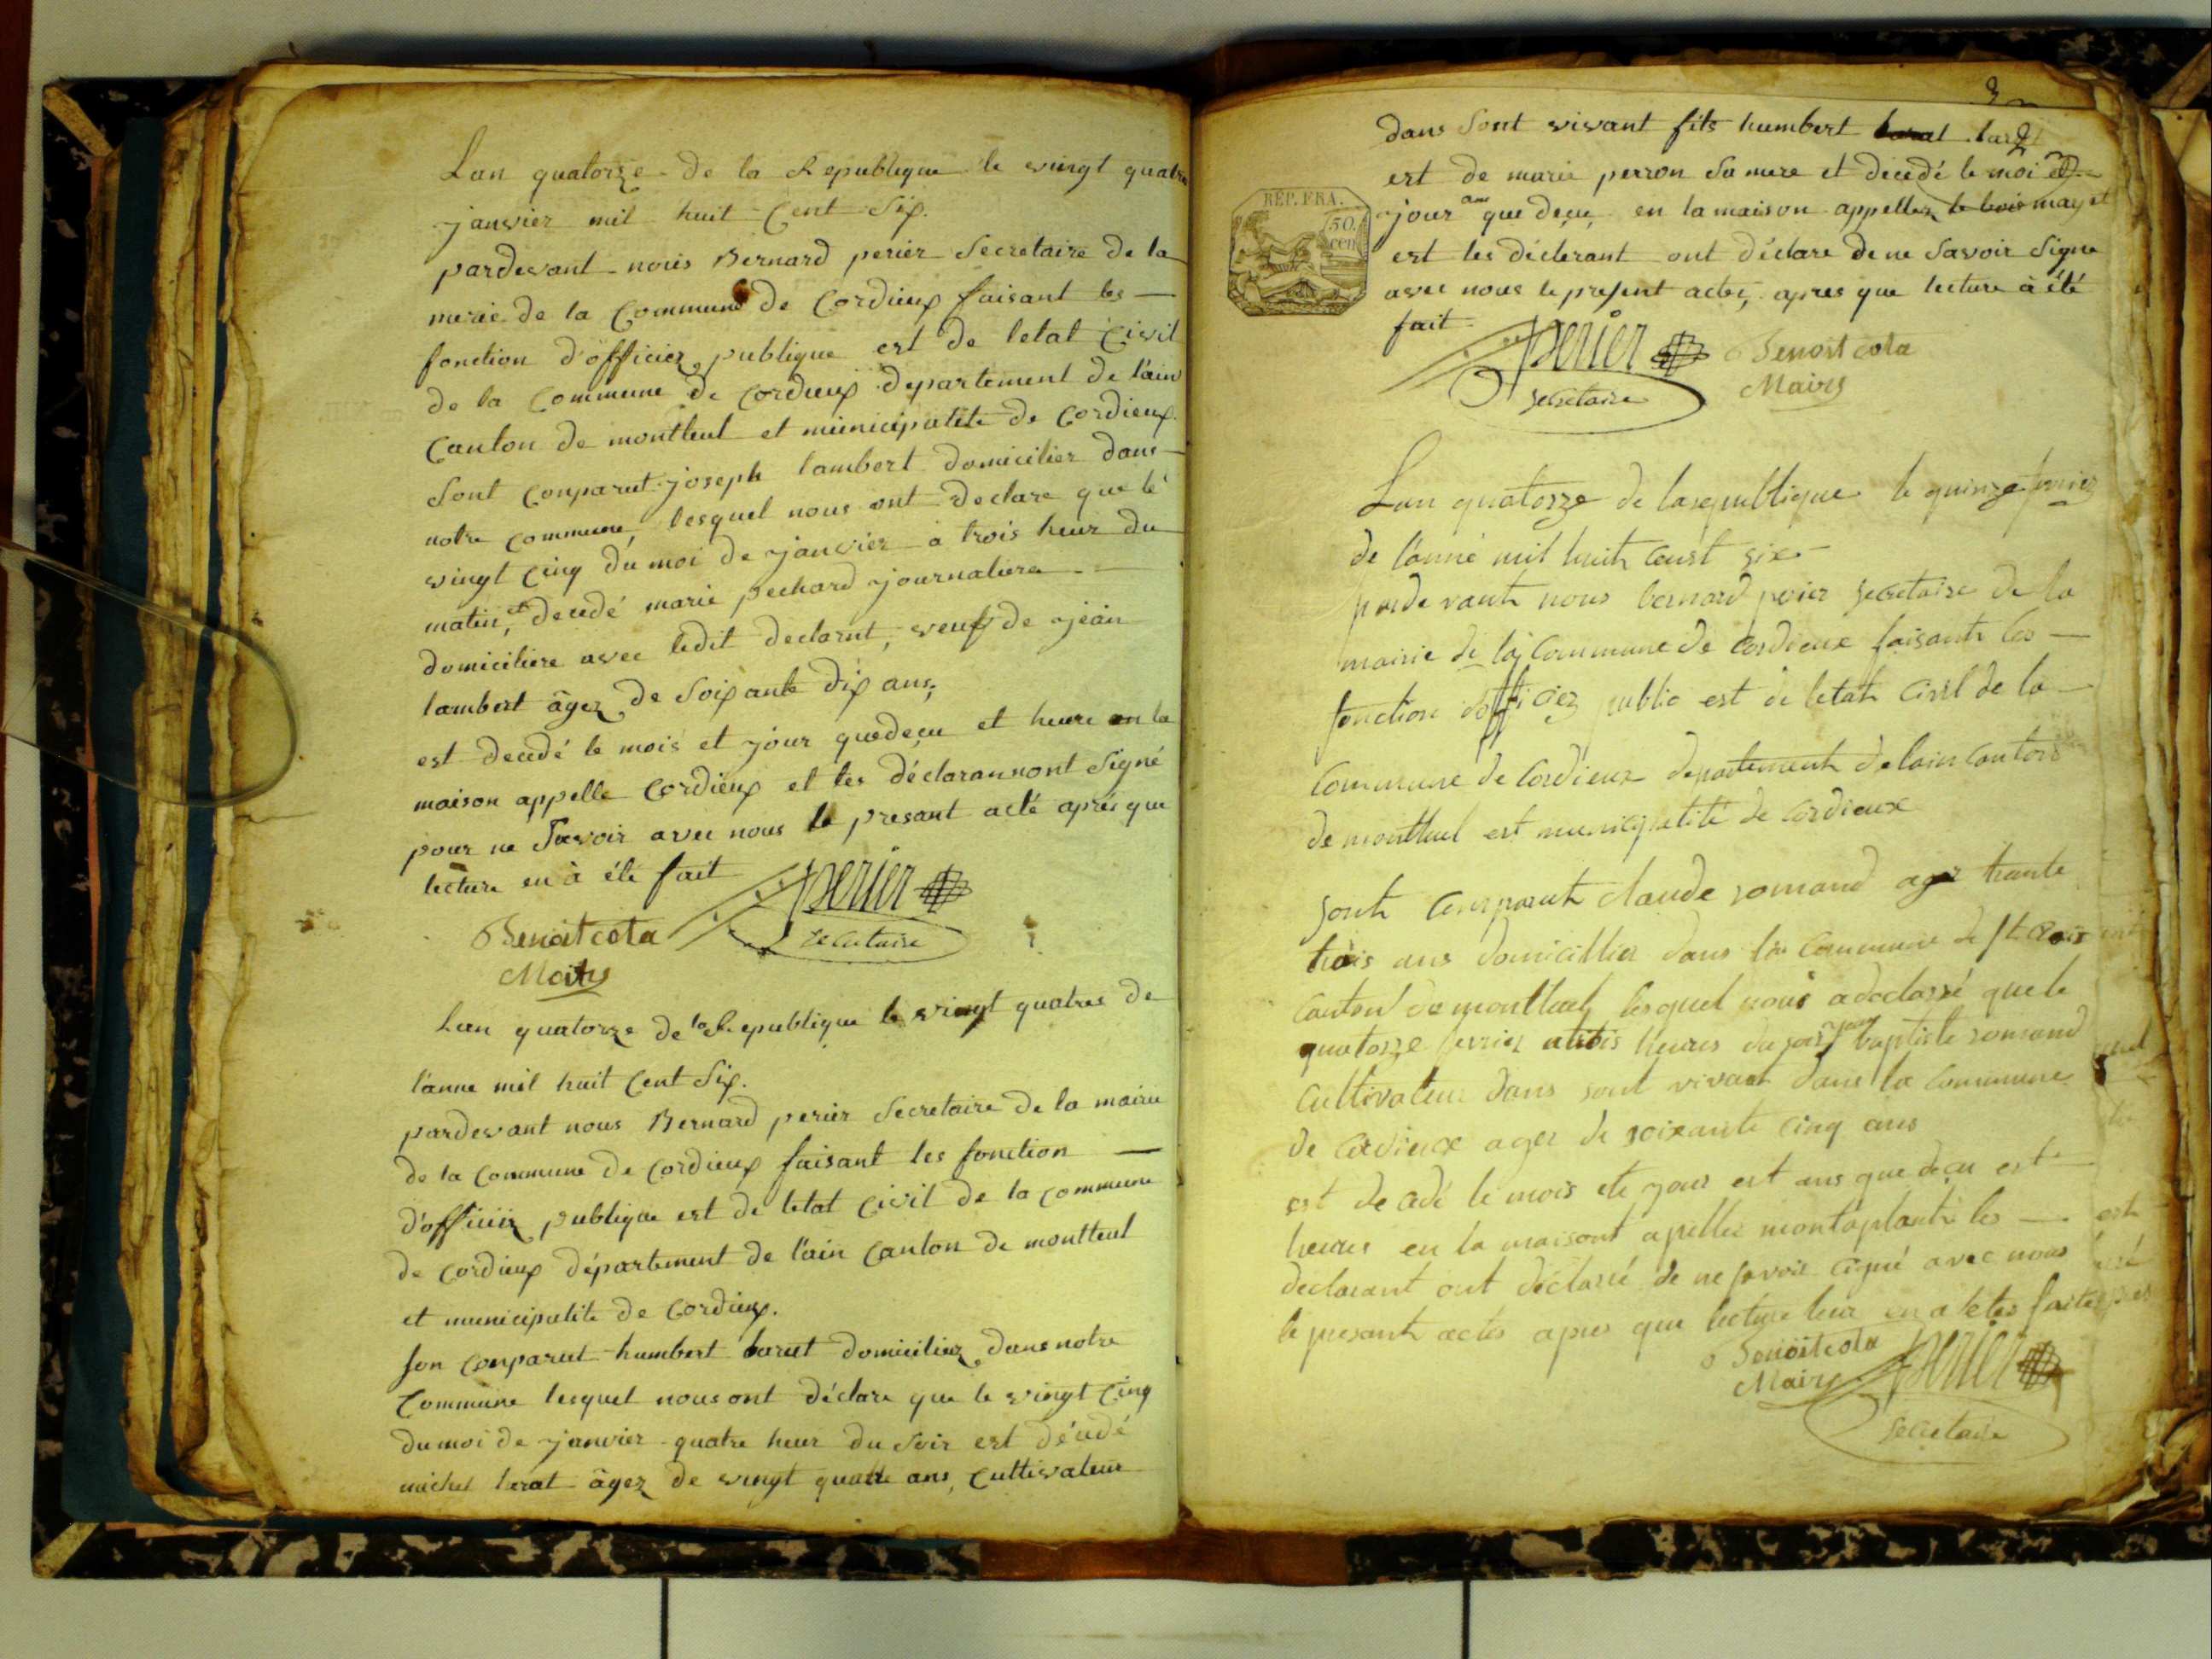 Lan quatorze de la Republique le vingt quatre
janvier mil huit Cent Six.
pardevant nous Bernard perier Secretaire de la
merie de la Commune de Cordieux faisant les
fonction d'officiez publique est de letat Civil
de la Commune de Cordieux departement de l'ain
Canton de montluel et municipalité de Cordieux
Sont Conparut joseph lambert domicilier dans
notre Commune, lesquel nous ont declare que le
vingt Cinq du moi de janvier a trois heur du
matin, et decedé marie pechard journaliere
domiciliere avec ledit declarnt, veuf de jean
lambert âgez de Soixante dix ans,
est decedé le mois et jour quedeçu et heure en la
maison appelle Cordieux et les déclarannont Signé
pour ne Savoir avec nous le presant acté aprés que
lecture en à été fait
perier
Secretaire
Benoit cota
Maire
Lan quatorze de la Republique le vingt quatres de
l'anne mil huit Cent Six.
pardevant nous Bernard perier Secretaire de la mairie
de la Commune de Cordieux faisant les fonction
d'officiez publique est de letat Civil de la Commune
de Cordieux département de l'ain Canton de montleul
et municipalité de Cordieux.
Son Conparut humbert barut domiciliez dans notre
Commune lesquel nous ont déclare que le vingt Cinq
du moi de janvier quatre heur du Soir est décédé
michel âgez de vingt quatre ans, Cultivateur
3
dans Sont vivant fils humbert
est de marie perron Sa mere et decedé le moi et
jour ans que deçu en la maison appellez le bois mayet
est les déclerant ont déclare de ne Savoir Signe
avec nous le present actes, apres que lecture à été
fait
REP. FRA.
50. cen
perier
Secretaire
Benoit cota
Maire
Lan quatorze de la republique le quinze fevriez
de l'anné mil huit censt six
pardevant nous bernard perier Secretaire de la
mairie de la Commune de Cordieux faisant les
fonction dofficiez public est de letat Civil de la
Commune de Cordieux departement de lain Canton
de montluel est municipalité de Cordieux
Sont Comparut claude romand agez trante
trois ans domicillier dans la Commune de Ste Croix
Canton de montluel, lesquel nous a declarré que le
quatorze fevrier atrois heures du soir jean baptiste romand
Cultivateur dans sont vivant dans la Commune
de Cordieux agez de soixante cinq ans
est decadé le mois ete jour est ans que deçu est
heures en la maisont apellez montaplant les
declarant ont déclarré de ne savoir signé avec nous
le presant actes apres que lecture leur en a etes faites
Benoit cota
Maire
perier
Secretaire